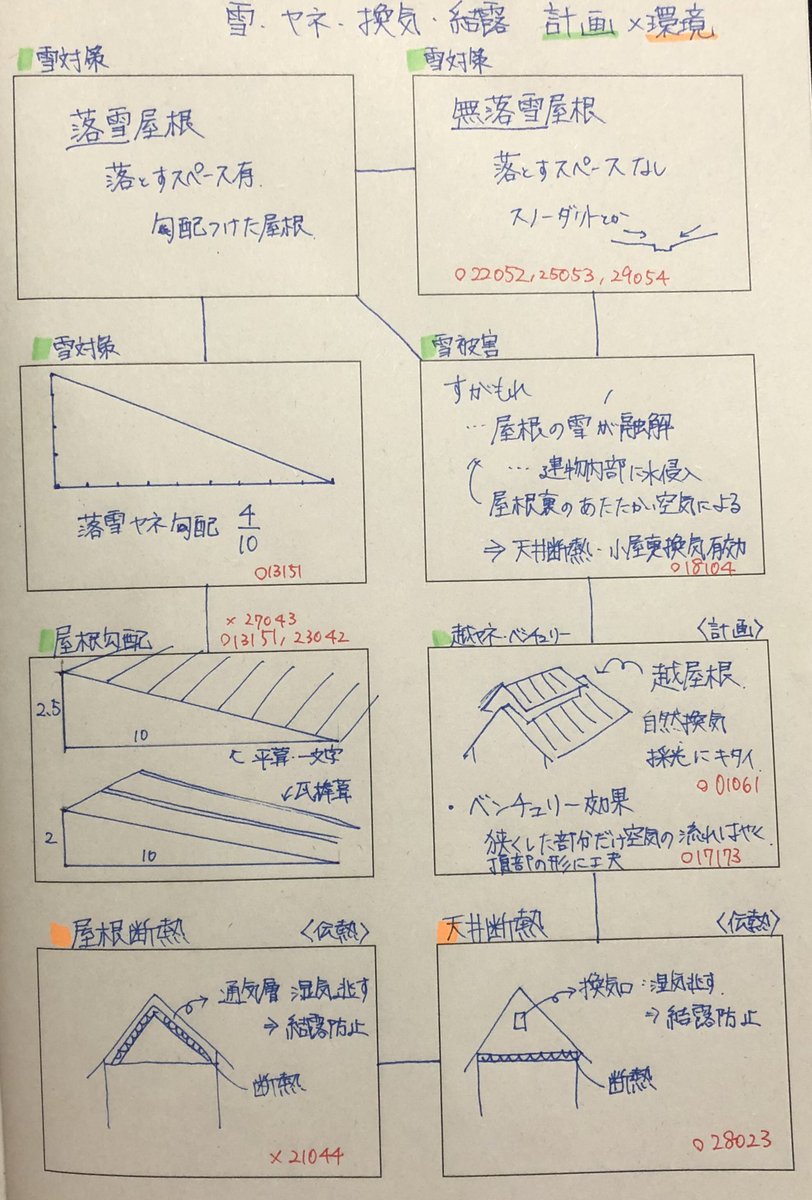 雪・ヤネ・換気・結露 計画×環境
雪対策
落雪屋根
落とすスペース有
勾配つけた屋根
雪対策
無落雪屋根
落とすスペースなし
スノーダクトとか
○22052, 25053, 29054
雪対策
落雪ヤネ勾配 4/10
○13151
雪被害
すがもれ
…屋根の雪が融解
…建物内部に水侵入
屋根裏のあたたかい空気による
⇒天井断熱・小屋裏換気有効
○18104
×27043
○13151, 23042
屋根勾配
2.5
10
平葺・一文字
瓦棒葺
2
10
越ヤネ・ベンチュリー 〈計画〉
越屋根
自然換気
採光にキタイ
○01061
・ベンチュリー効果
狭くした部分だけ空気の流れはやく
頂部の形に工夫
○17173
屋根断熱 〈伝熱〉
通気層 湿気逃す
⇒結露防止
断熱
×21044
天井断熱 〈伝熱〉
換気口:湿気逃す
⇒結露防止
断熱
○28023